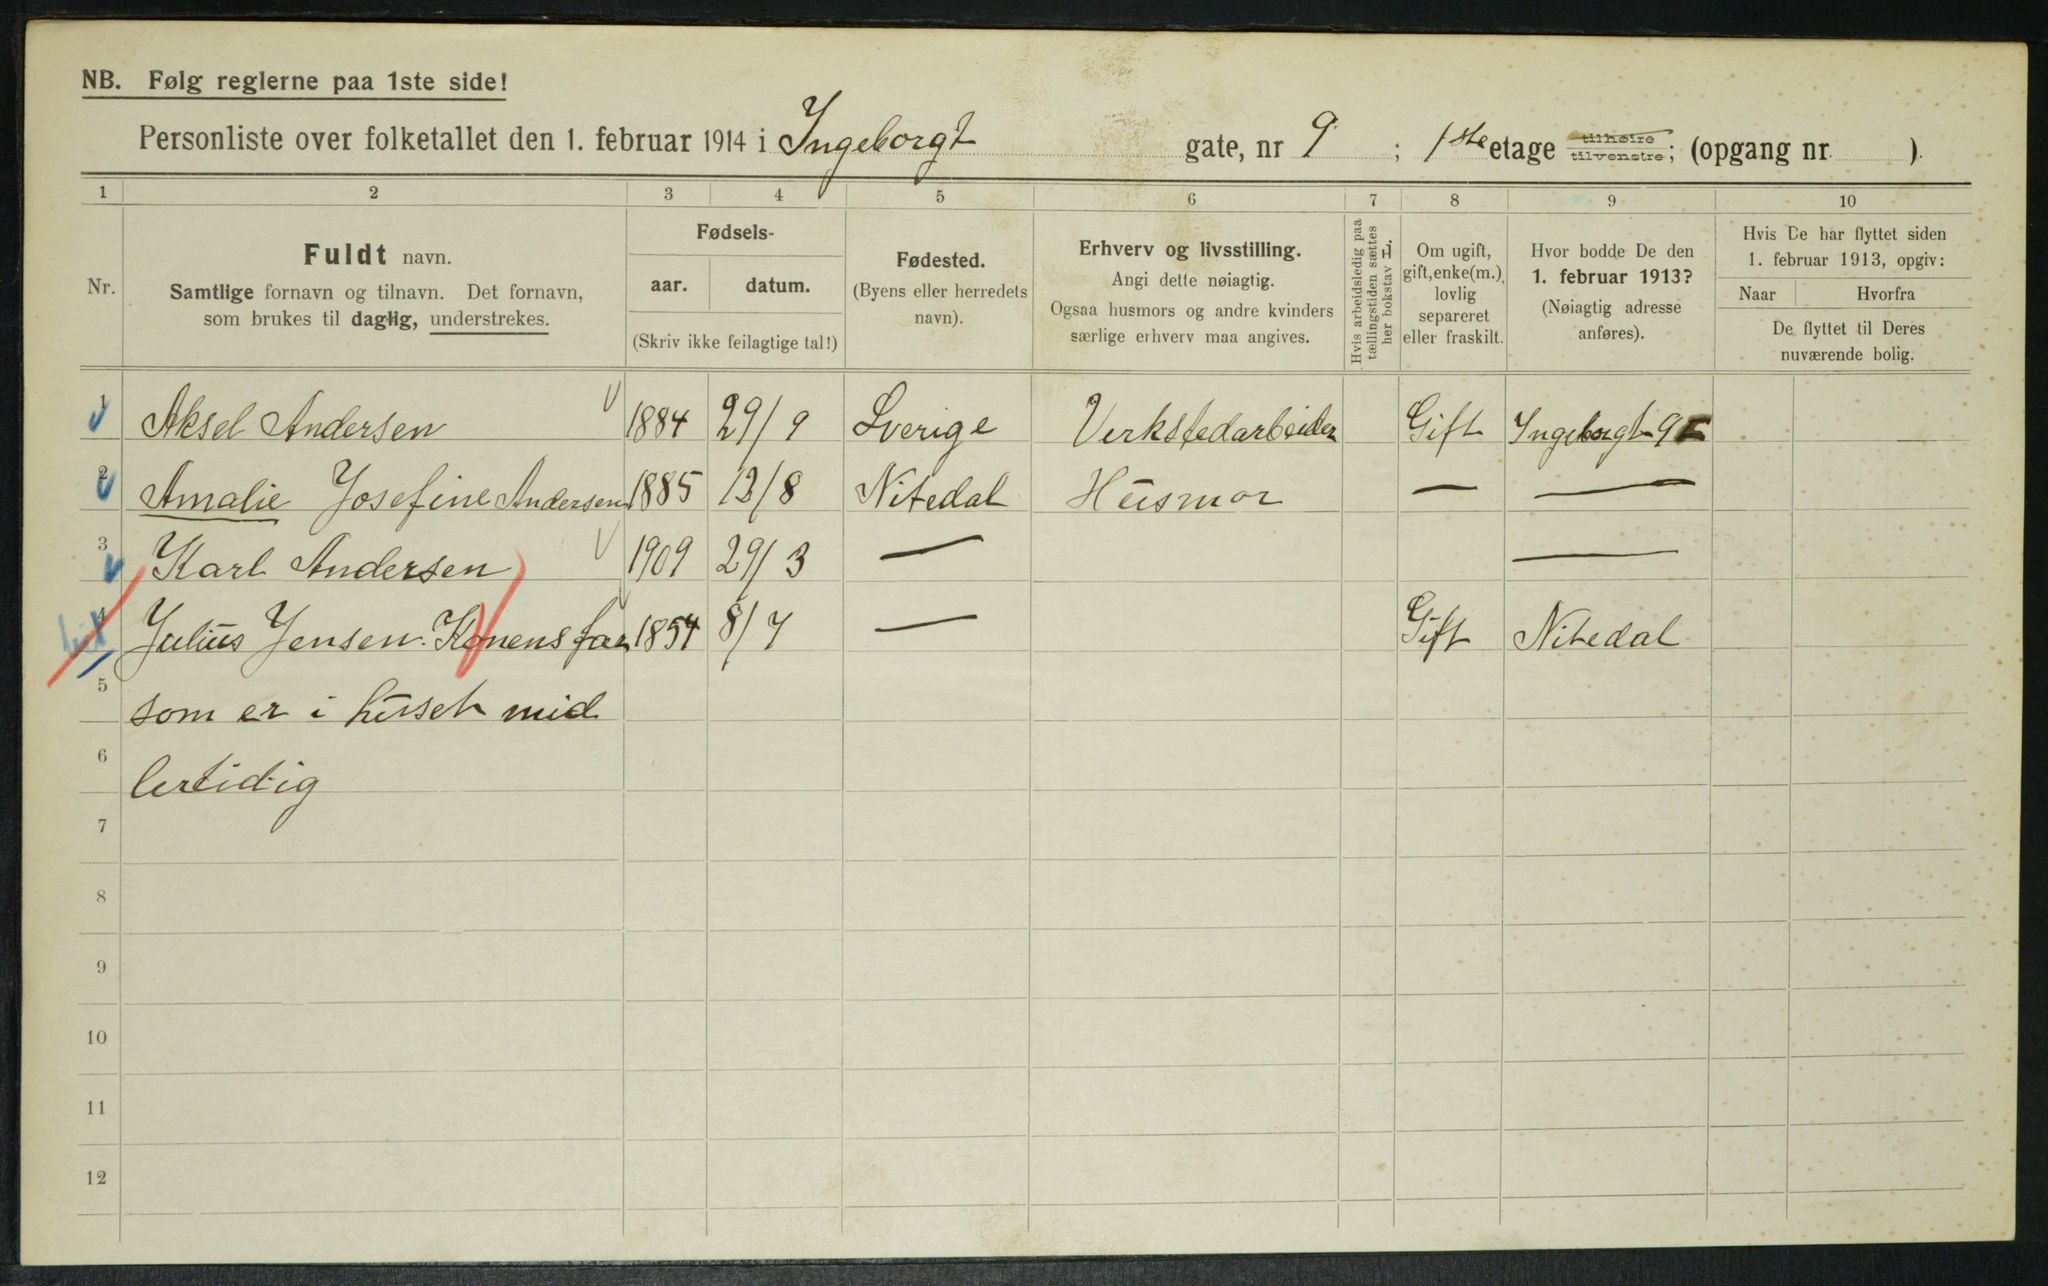 NB. Følg reglerne paa 1ste side!
Personliste over folketallet den 1. februar 1914 i Ingeborgt gate, nr 9 ; 1ste etage tilhøire tilvenstre; (opgang nr. ).
1 2 3 4 5 6 7 8 9 10
Nr.
Fuldt navn.
Samtlige fornavn og tilnavn. Det fornavn,
som brukes til daglig, understrekes.
Fødsels-
aar. datum.
(Skriv ikke feilagtige tal!)
Fødested.
(Byens eller herredets
navn).
Erhverv og livsstilling.
Angi dette nøiagtig.
Ogsaa husmors og andre kvinders
særlige erhverv maa angives.
Hvis arbeidsledig paa
tællingstiden sættes
her bokstav L.
Om ugift,
gift, enke(m.),
lovlig
separeret
eller fraskilt.
Hvor bodde De den
1. februar 1913?
(Nøiagtig adresse
anføres).
Hvis De har flyttet siden
1. februar 1913, opgiv:
Naar Hvorfra
De flyttet til Deres
nuværende bolig.
1 Aksel Andersen 1884 29/9 Sverige Verkstedarbeider Gift Ingeborgt 9
2 Amalie Josefine Andersen 1885 13/8 Nitedal Husmor — —
3 Karl Andersen 1909 29/3 — —
4 Julius Jensen. Konens far 1854 8/7 — Gift Nitedal
5 som er i huset mid
6 lertidig
7
8
9
10
11
12